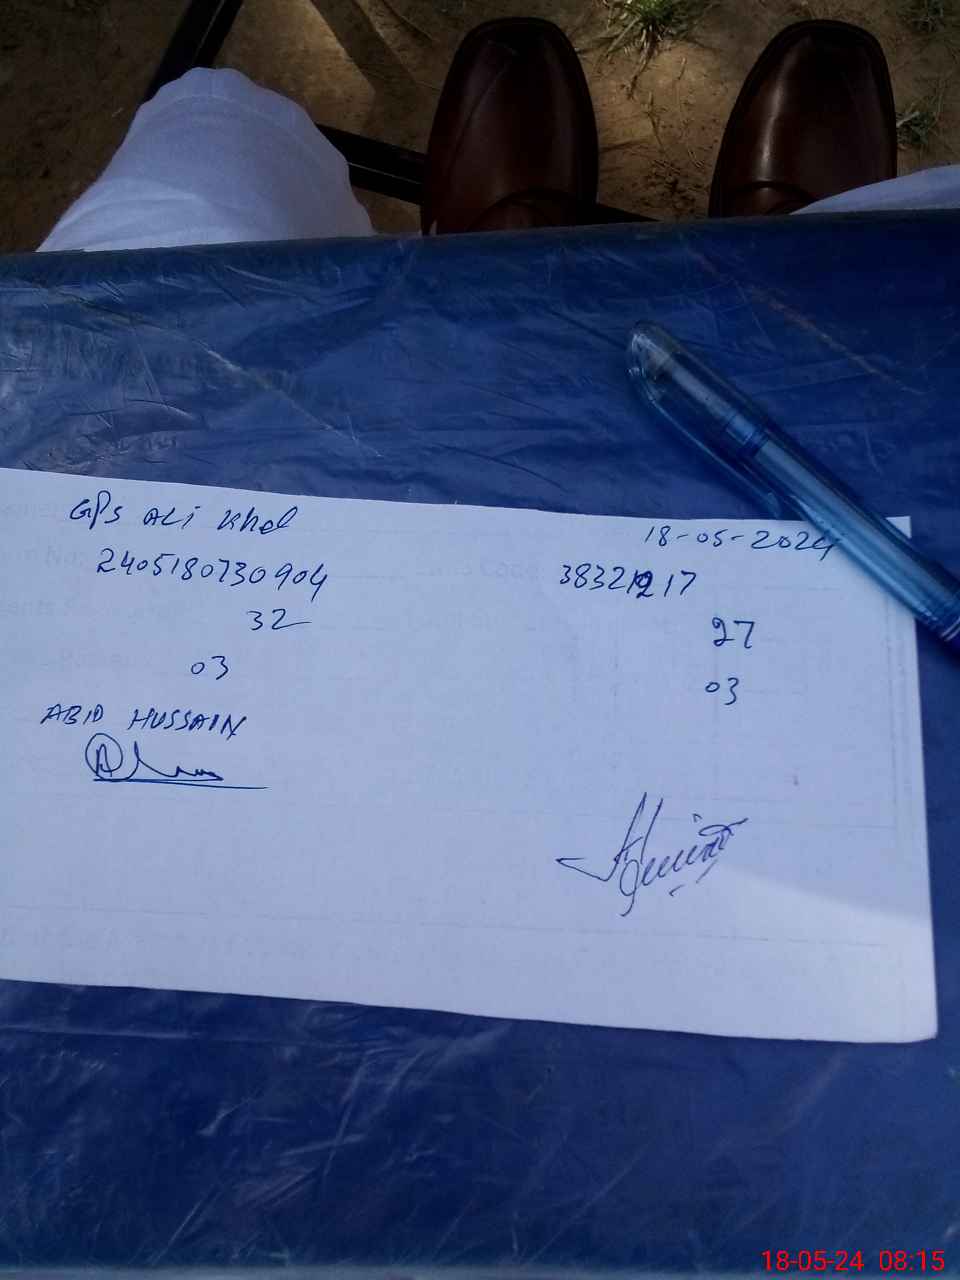 GPS ALi Khel
18-05-2024
2405180730904
38321217
32
27
03
03
ABID HUSSAIN
18-05-24 08:15